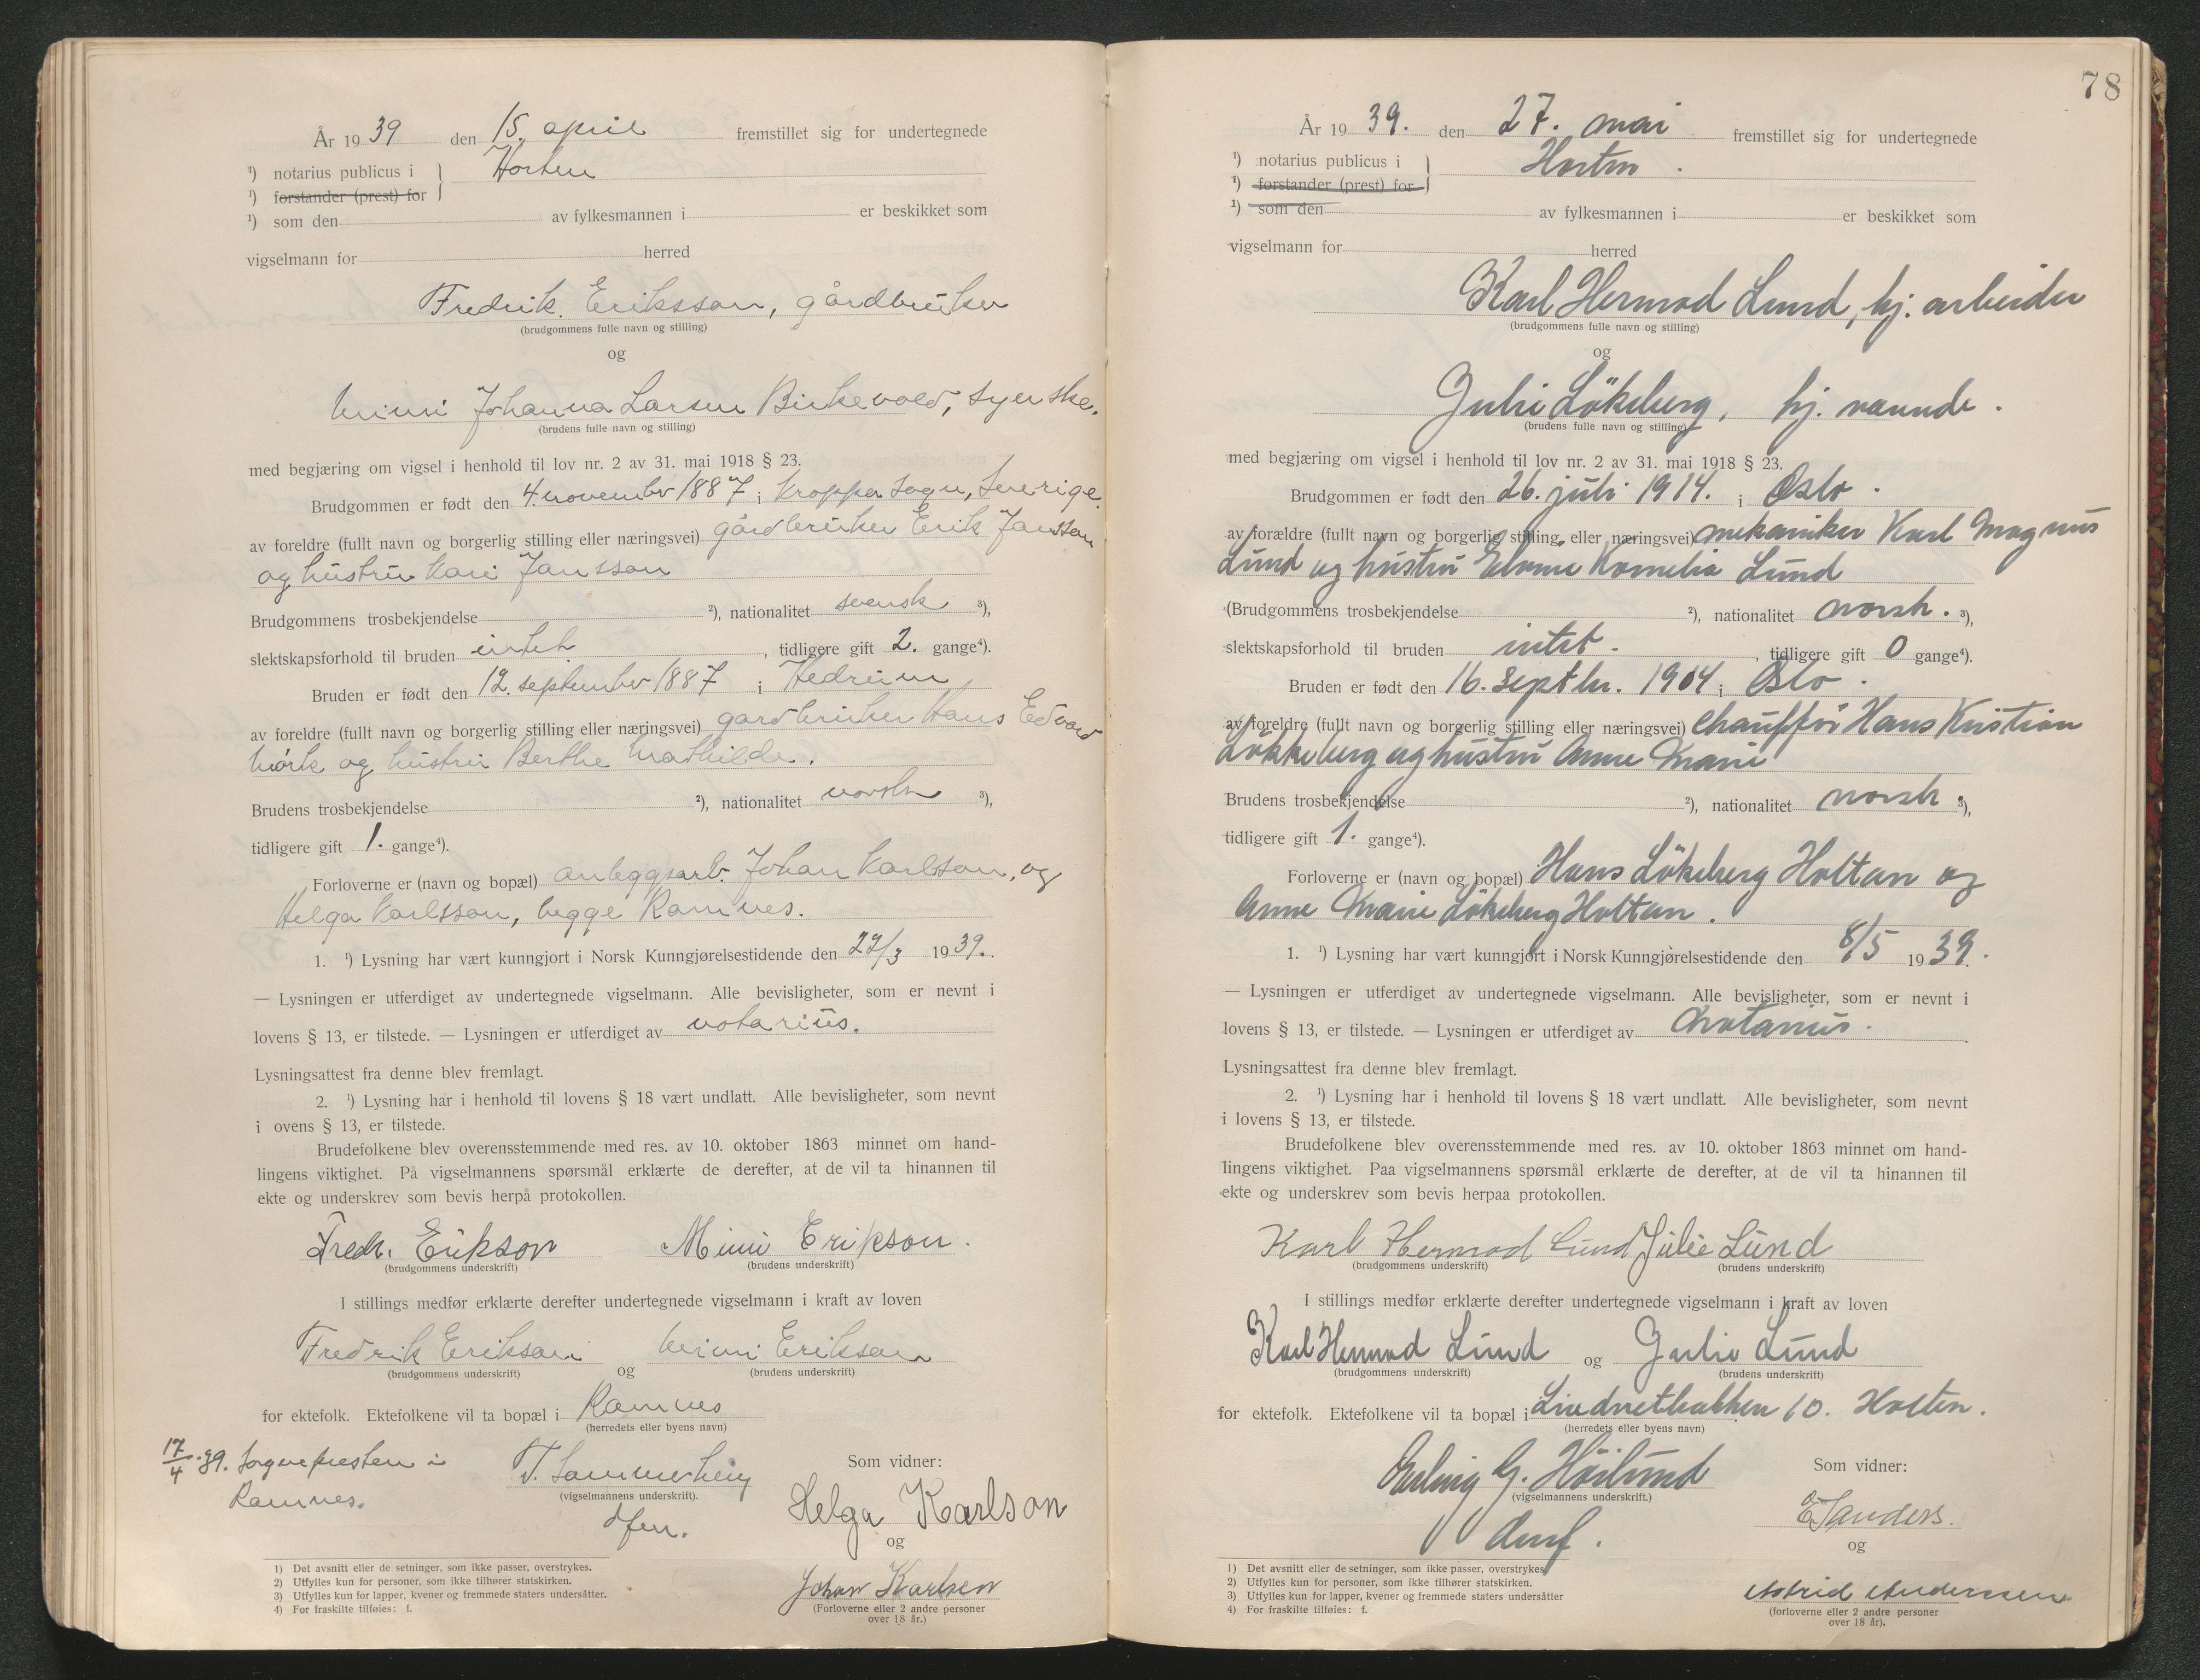 År 19 39 den 15. april fremstillet sig for undertegnede
¹) notarius publicus i } Horten
¹) forstander (prest) for
¹) som den av fylkesmannen i er beskikket som
vigselmann for herred
Fredrik Eriksson, gårdbruker
(brudgommens fulle navn og stilling)
og
Mimi Johanna Larsen Birkevold, syerske.
(brudens fulle navn og stilling)
med begjæring om vigsel i henhold til lov nr. 2 av 31. mai 1918 § 23.
Brudgommen er født den 4. november 1887 i Kroppa sogn, Sverige.
av foreldre (fullt navn og borgerlig stilling eller næringsvei) gårdbruker Erik Jansson
og hustru Kari Jansson
Brudgommens trosbekjendelse ²), nationalitet svensk ³),
slektskapsforhold til bruden intet, tidligere gift 2. gange⁴).
Bruden er født den 12. september 1887 i Hedrum
av foreldre (fullt navn og borgerlig stilling eller næringsvei) gårdbruker Hans Edvard
Mörk og hustru Berthe Mathilde.
Brudens trosbekjendelse ²), nationalitet norsk ³),
tidligere gift 1. gange⁴).
Forloverne er (navn og bopæl) anleggsarb. Johan Karlson, og
Helga Karlsson, begge Ramnes.
1. ¹) Lysning har vært kunngjort i Norsk Kunngjørelsestidende den 27/3 1939.
— Lysningen er utferdiget av undertegnede vigselmann. Alle bevisligheter, som er nevnt i
lovens § 13, er tilstede. — Lysningen er utferdiget av notarius.
Lysningsattest fra denne blev fremlagt.
2. ¹) Lysning har i henhold til lovens § 18 vært undlatt. Alle bevisligheter, som nevnt
i ovens § 13, er tilstede.
Brudefolkene blev overensstemmende med res. av 10. oktober 1863 minnet om hand-
lingens viktighet. På vigselmannens spørsmål erklærte de derefter, at de vil ta hinannen til
ekte og underskrev som bevis herpå protokollen.
Fredr. Erikson Mimi Erikson.
(brudgommens underskrift) (brudens underskrift)
I stillings medfør erklærte derefter undertegnede vigselmann i kraft av loven
Fredrik Erikson og Mimi Eriksson
(brudgommens underskrift) (brudens underskrift)
for ektefolk. Ektefolkene vil ta bopæl i Ramnes
(herredets eller byens navn)
17/4 39. Sognepresten i
Ramnes.
T. Sommerheig
(vigselmannens underskrift).
dfm.
Som vidner:
Helga Karlson
og
Johan Karlsen
(Forloverne eller 2 andre personer
over 18 år.)
1) Det avsnitt eller de setninger, som ikke passer, overstrykes.
2) Utfylles kun for personer, som ikke tilhører statskirken.
3) Utfylles kun for lapper, kvener og fremmede staters undersåtter.
4) For fraskilte tilføies: f.
78
År 19 39. den 27. mai fremstillet sig for undertegnede
¹) notarius publicus i } Horten.
¹) forstander (prest) for
¹) som den av fylkesmannen i er beskikket som
vigselmann for herred
Karl Hermod Lund, hj. arbeider
(brudgommens fulle navn og stilling)
og
Julie Lökeberg, hj. værende.
(brudens fulle navn og stilling)
med begjæring om vigsel i henhold til lov nr. 2 av 31. mai 1918 § 23.
Brudgommen er født den 26. juli 1914. i Oslo.
av forældre (fullt navn og borgerlig stilling eller næringsvei) mekaniker Karl Magnus
Lund og hustru Kornelia Lund
(Brudgommens trosbekjendelse ²), nationalitet norsk. ³),
slektskapsforhold til bruden intet., tidligere gift 0 gange⁴).
Bruden er født den 16. septbr. 1904 i Oslo.
av foreldre (fullt navn og borgerlig stilling eller næringsvei) chauffør Hans Kristian
Lökkeberg og hustru Anne Marie
Brudens trosbekjendelse ²), nationalitet norsk. ³),
tidligere gift 1. gange⁴).
Forloverne er (navn og bopæl) Hans Lökeberg Holtan og
Anne Marie Lökeberg Holtan.
1. ¹) Lysning har vært kunngjort i Norsk Kunngjørelsestidende den 8/5 1939.
— Lysningen er utferdiget av undertegnede vigselmann. Alle bevisligheter, som er nevnt i
lovens § 13, er tilstede. — Lysningen er utferdiget av notarius.
Lysningsattest fra denne blev fremlagt.
2. ¹) Lysning har i henhold til lovens § 18 vært undlatt. Alle bevisligheter, som nevnt
i lovens § 13, er tilstede.
Brudefolkene blev overensstemmende med res. av 10. oktober 1863 minnet om hand-
lingens viktighet. Paa vigselmannens spørsmål erklærte de derefter, at de vil ta hinannen til
ekte og underskrev som bevis herpaa protokollen.
Karl Hermod Lund Julie Lund
(brudgommens underskrift) (brudens underskrift)
I stillings medfør erklærte derefter undertegnede vigselmann i kraft av loven
Karl Hermod Lund og Julie Lund
(brudgommens underskrift) (brudens underskrift)
for ektefolk. Ektefolkene vil ta bopæl i 10. Horten.
(herredets eller byens navn)
Erling G. Höilund
(vigselmannens underskrift.)
Som vidner:
E Sanders.
og
Astrid Anderssen
(forloverne eller 2 andre personer
over 18 år).
1) Det avsnitt eller de setninger, som ikke passer, overstrykes
2) Utfylles kun for personer, som ikke tilhører statskirken.
3) Utfylles kun for lapper, kvener og fremmede staters undersåtter
4) For fraskilte tilføies: f.